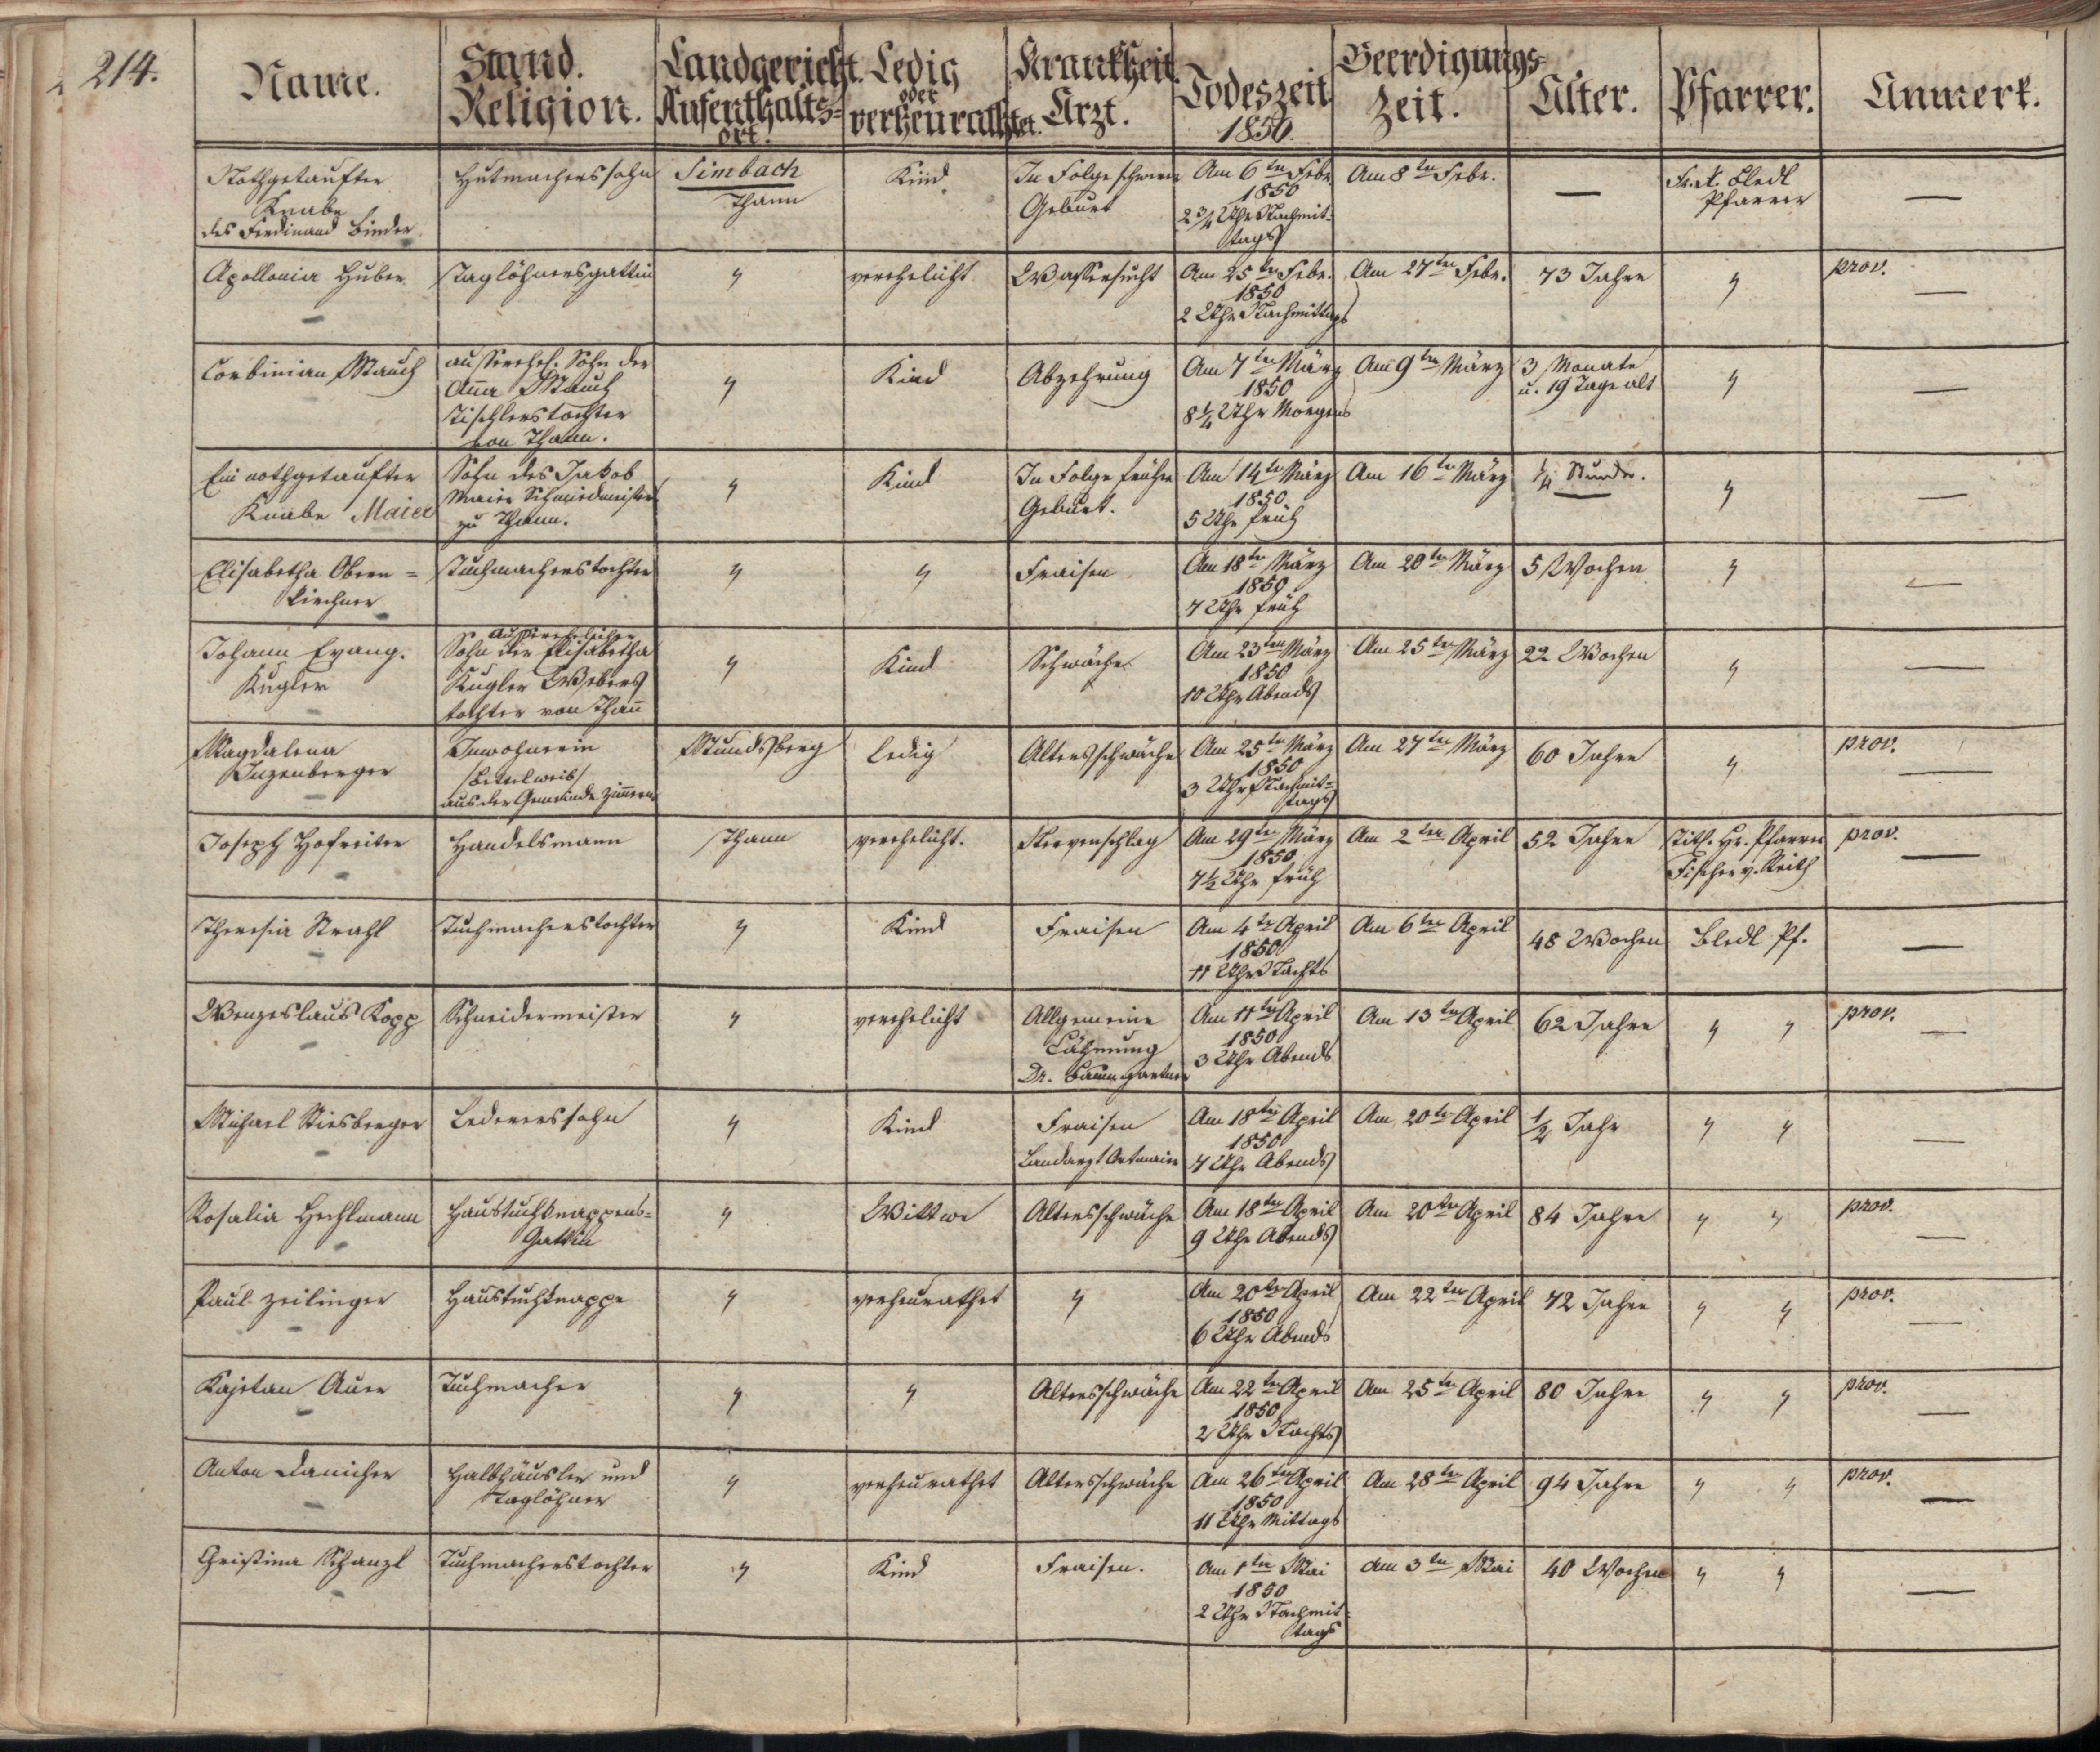 214.
Name.
Stand.
Religion.
Landgericht.
Aufenthalts=
ort.
Ledig
oder
verheurathet.
Krankheit.
Arzt.
Todeszeit
1850.
Beerdigungs=
Zeit.
Alter.
Pfarrer.
Anmerk.
Nothgetaufter
Knabe
des Ferdinand Binder
Hutmacherssohn
Simbach
Thann
Kind
In Folge schwerer
Geburt
Am 6ten Febr.
1850
2 3/4 Uhr Nachmit-
tags
Am 8ten Febr.
—
Bledl
Pfarrer
—
Apollonia Huber
Taglöhnersgattin
"
verehelicht
Wassersucht
Am 25ten Febr.
1850
2 Uhr Nachmittags
Am 27ten Febr.
73 Jahre
"
prov.
—
Corbinian Mauch
ausserehel. Sohn der
Anna Mauch
Tischlerstochter
von Thann.
"
Kind
Abzehrung
Am 7ten März
1850
8 1/4 Uhr Morgens
Am 9ten März
3 Monate
u. 19 Tage alt
"
—
Ein nothgetaufter
Knabe Maier
Sohn des Jakob
Maier Schmiedmeisters
zu Thann.
"
Kind
In Folge früher
Geburt.
Am 14ten März
1850
5 Uhr früh
Am 16ten März
1/4 Stunde.
"
—
Elisabetha Obern=
kirchner
Tuchmacherstochter
"
"
Fraisen
Am 18ten März
1850
7 Uhr früh
Am 20ten März
5 Wochen
"
—
Johann Evang.
Kugler
Ausserehelicher
Sohn der Elisabetha
Kugler Webers
tochter von Thann
"
Kind
Schwäche
Am 23ten März
1850
10 Uhr Abends
Am 25ten März
22 Wochen
"
—
Magdalena
Inzenberger
Inwohnerin
/Bettelweib/
aus der Gemeinde Zimmern
Mundsberg
Ledig
Altersschwäche
Am 25ten März
1850
3 Uhr Nachmit=
tags
Am 27ten März
60 Jahre
"
prov.
—
Joseph Hofreiter
Handelsmann
Thann
verehelicht.
Nervenschlag
Am 29ten März
1850
7 1/2 Uhr früh
Am 2ten April
52 Jahre
Titl. Hr. Pfarrer
Fischer v. Reith
prov.
—
Theresia Strahl
Tuchmacherstochter
"
Kind
Fraisen
Am 4ten April
1850
11 Uhr Nachts
Am 6ten April
48 Wochen
Bledl Pf.
—
Wenzeslaus Kopp
Schneidermeister
"
verehelicht
Allgemeine
Lähmung
Dr. Baumgartner
Am 11ten April
1850
3 Uhr Abends
Am 13ten April
62 Jahre
" "
prov.
—
Michael Stiesberger
Lederers sohn
"
Kind
Fraisen
Landarzt Ortmaier
Am 18ten April
1850
7 Uhr Abends
Am 20ten April
1/2 Jahr
" "
—
Rosalia Hechlmann
Haustuchknappens=
Gattin
"
Wittwe
Altersschwäche
Am 18ten April
9 Uhr Abends
Am 20ten April
84 Jahre
" "
prov.
—
Paul Zeilinger
Haustuchknappe
"
verheurathet
"
Am 20ten April
1850
6 Uhr Abends
Am 22ten April
72 Jahre
" "
prov.
—
Kajetan Auer
Tuchmacher
"
"
Altersschwäche
Am 22ten April
1850
2 Uhr Nachts
Am 25ten April
80 Jahre
" "
prov.
—
Anton Danicher
Halbhäusler und
Taglöhner
"
verheurathet
Altersschwäche
Am 26ten April
1850
11 Uhr Mittags
Am 28ten April
94 Jahre
" "
prov.
—
Christina Schanzl
Tuchmacherstochter
"
Kind
Fraisen.
Am 1ten Mai
1850
2 Uhr Nachmit-
tags
Am 3ten Mai
40 Wochen
" "
—